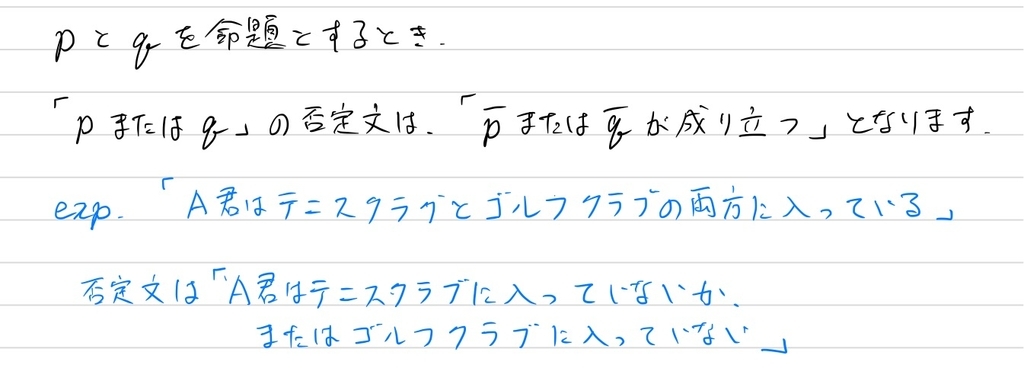 pとqを命題とするとき.
「pまたはq」の否定文は、「p̅またはq̅が成り立つ」となります.
exp. 「A君はテニスクラブとゴルフクラブの両方に入っている」
否定文は「A君はテニスクラブに入っていないか、
またはゴルフクラブに入っていない」